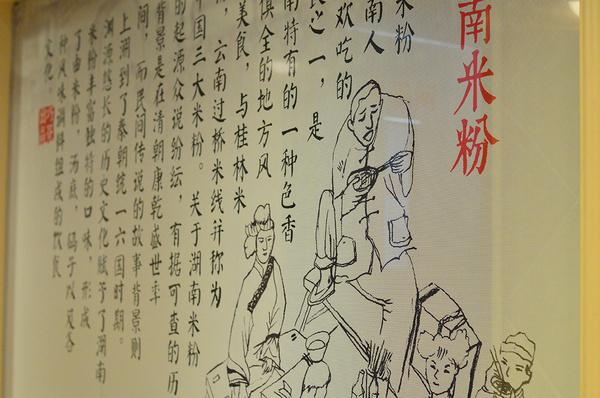 南米粉
米粉
南人
欢吃的
之一，是
南特有的一种色香
俱全的地方风
美食，与桂林米
，云南过桥米线并称为
国三大米粉。关于湖南米粉
的起源众说纷纭，有据可查的历
背景是在清朝康乾盛世年
间，而民间传说的故事背景则
上溯到了秦朝统一六国时期。
渊源悠长的历史文化赋予了湖南
米粉丰富独特的口味，形成
了由米粉，汤底，码子以及各
种风味调料组成的饮食
文化。